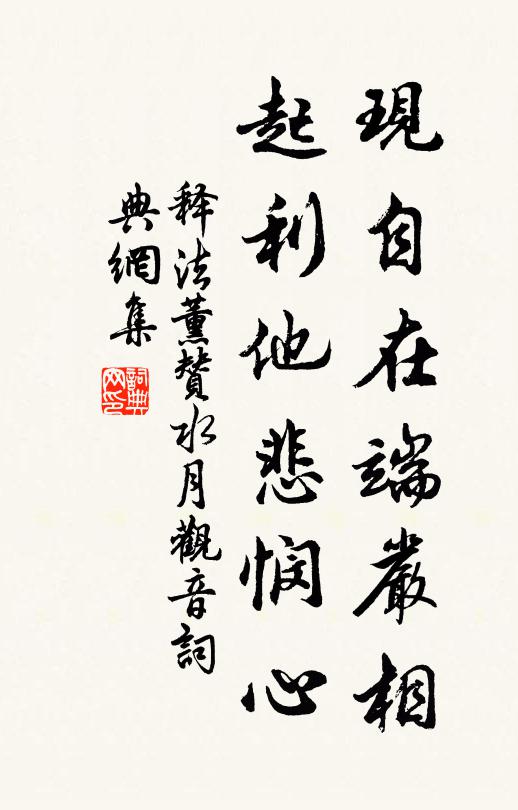 現自在端嚴相
起利他悲憫心
释法薰贊水月觀音詞
典網集
詞典
网印